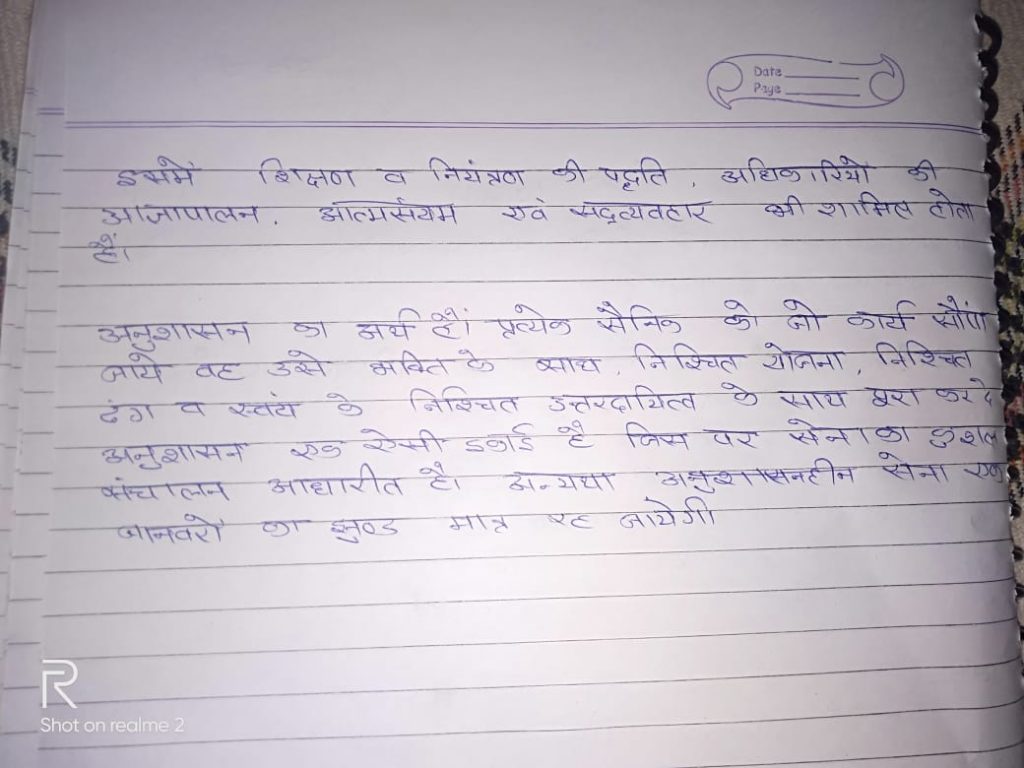 Date
Page
इसमें शिक्षण व नियंत्रण की पद्धति, अधिकारियों की
आज्ञापालन, आत्मसंयम एवं सद्व्यवहार भी शामिल होता
है।
अनुशासन का अर्थ है। प्रत्येक सैनिक को जो कार्य सौंपा
जाये वह उसे भक्ति के साथ, निश्चित योजना, निश्चित
ढंग व स्वंय के निश्चित उत्तरदायित्व के साथ पूरा कर दे
अनुशासन एक ऐसी इकाई है जिस पर सेना का कुशल
संचालन आधारीत है। अन्यथा अनुशासनहीन सेना एक
जानवरों का झुण्ड मात्र रह जायेगी
R
Shot on realme 2